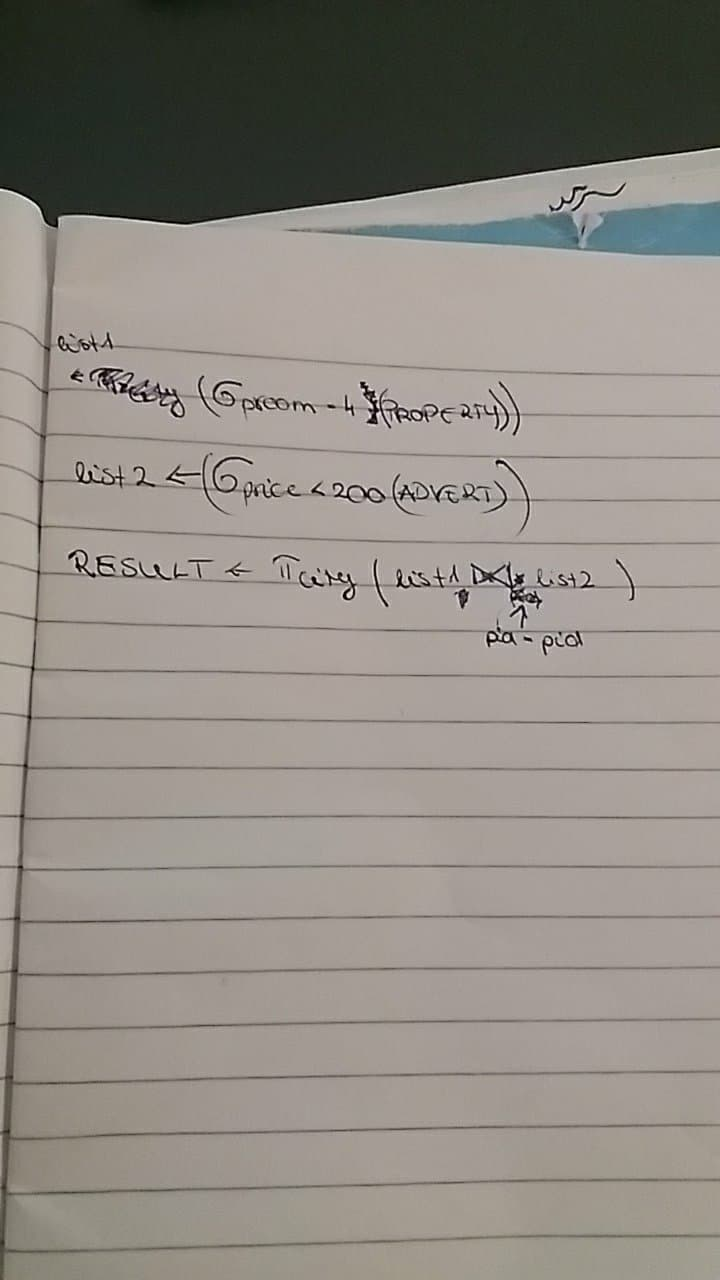 list1
← (σ proom = 4 (PROPERTY))
list2 ← (σ price < 200 (ADVERT))
RESULT ← π city ( list1 ⋈ list2 )
↑
pid = pid